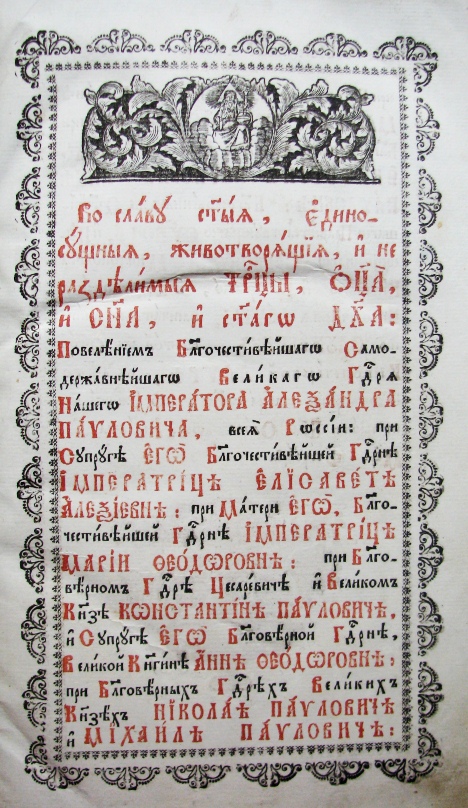 Во славу ст҃ыѧ, є҆дино-
су́щныѧ, животворѧ́щїѧ, и҆ не
раздѣли́мыѧ трⷪ҇цы, Ѻ҆ц҃а̀,
и҆ Сн҃а, и҆ ст҃а́гѡ Дх҃а:
Повелѣ́нїемъ Бл҃гочести́вѣйшагѡ Само-
держа́внѣйшагѡ Вели́кагѡ Гдⷭ҇рѧ
На́шегѡ І҆МПЕРА́ТОРА А҆ЛЕѮА́НДРА
ПА́ѴЛОВИЧА, всеѧ̀ Рѡссі́и: при
Супру́гѣ Є҆ГѠ̀ Бл҃гочести́вѣйшей Гдⷭ҇рнѣ
І҆МПЕРАТРИ́ЦѢ Є҆ЛІСАВЕ́ТѢ
А҆ЛЕѮІ́ЕВНѢ: при Ма́тери Є҆ГѠ̀, Бл҃го-
чести́вѣйшей Гдⷭ҇рнѣ І҆МПЕРАТРИ́ЦѢ
МАРІ́И ѲЕО́ДѠРОВНѢ: при Бл҃го-
вѣ́рномъ Гдⷭ҇рѣ Цесаре́вичѣ и҆ Вели́комъ
Кн҃зѣ КѠНСТАНТІ́НѢ ПА́ѴЛОВИЧѢ,
и҆ Супру́гѣ Є҆ГѠ̀ Бл҃говѣ́рной Гдⷭ҇рнѣ,
Вели́кой Кн҃ги́нѣ А҆́ННѢ ѲЕО́ДѠРОВНѢ,
при Бл҃говѣ́рныхъ Гдⷭ҇рѣхъ Вели́кихъ
Кн҃зѣ́хъ НІКОЛА́Ѣ ПА́ѴЛОВИЧѢ
и҆ МІХАИ́ЛѢ ПА́ѴЛОВИЧѢ: